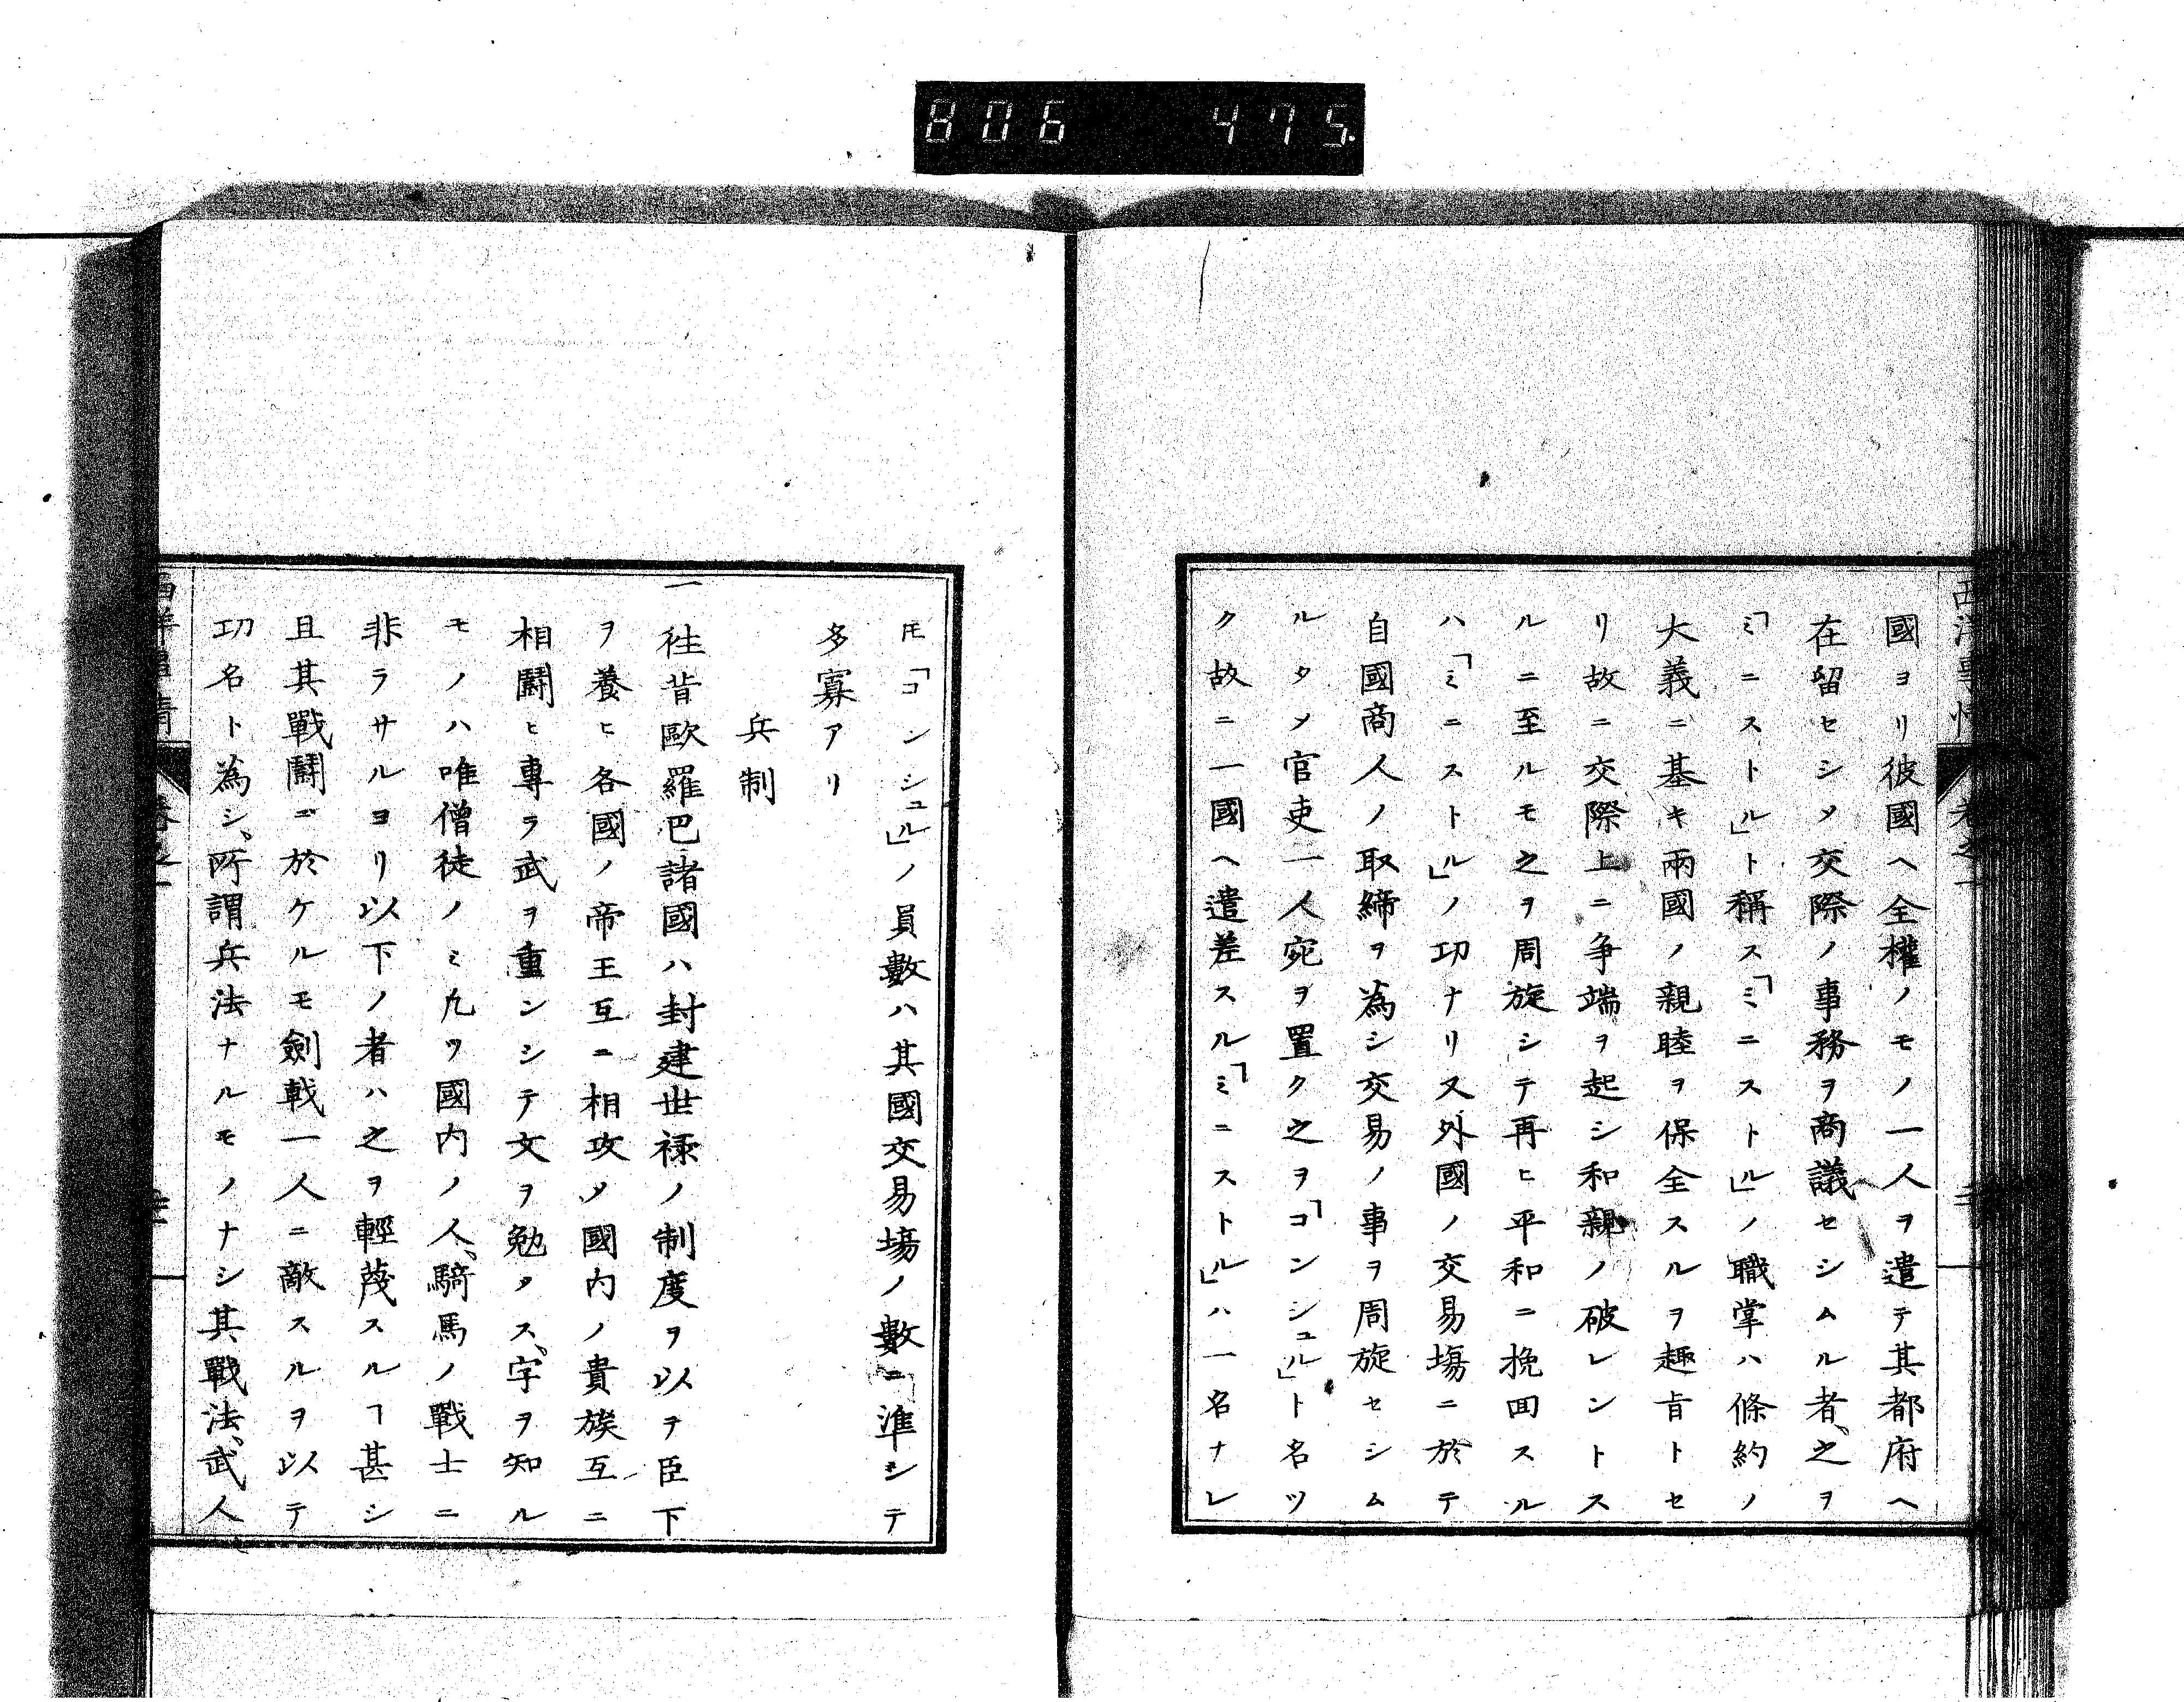 806 475
國ヨリ彼國ヘ全權ノモノ一人ヲ遣テ其都府ヘ
在留セシメ交際ノ事務ヲ商議セシムル者、之ヲ
「ミニストル」ト稱ス「ミニストル」ノ職掌ハ條約ノ
大義ニ基キ兩國ノ親睦ヲ保全スルヲ趣旨トセ
リ故ニ交際上ニ争端ヲ起シ和親ノ破レントス
ルニ至ルモ之ヲ周旋シテ再ヒ平和ニ挽回スル
ハ「ミニストル」ノ功ナリ又外國ノ交易塲ニ於テ
自國商人ノ取締ヲ為シ交易ノ事ヲ周旋セシム
ルタメ官吏一人宛ヲ置ク之ヲ「コンシュル」ト名ツ
ク故ニ一國ヘ遣差スル「ミニストル」ハ一名ナレ
𪜈「コンシュル」ノ員數ハ其國交易塲ノ數ニ準シテ
多寡アリ
兵制
一 往昔歐羅巴諸國ハ封建世禄ノ制度ヲ以テ臣下
ヲ養ヒ各國ノ帝王互ニ相攻メ國内ノ貴族互ニ
相鬪ヒ專ラ武ヲ重ンシテ文ヲ勉メス、字ヲ知ル
モノハ唯僧徒ノミ九ツ國内ノ人、騎馬ノ戰士ニ
非ラサルヨリ以下ノ者ハ之ヲ輕蔑スルヿ甚シ
且其戰鬪ニ於ケルモ劍戟一人ニ敵スルヲ以テ
功名ト為シ、所謂兵法ナルモノナシ其戰法、武人